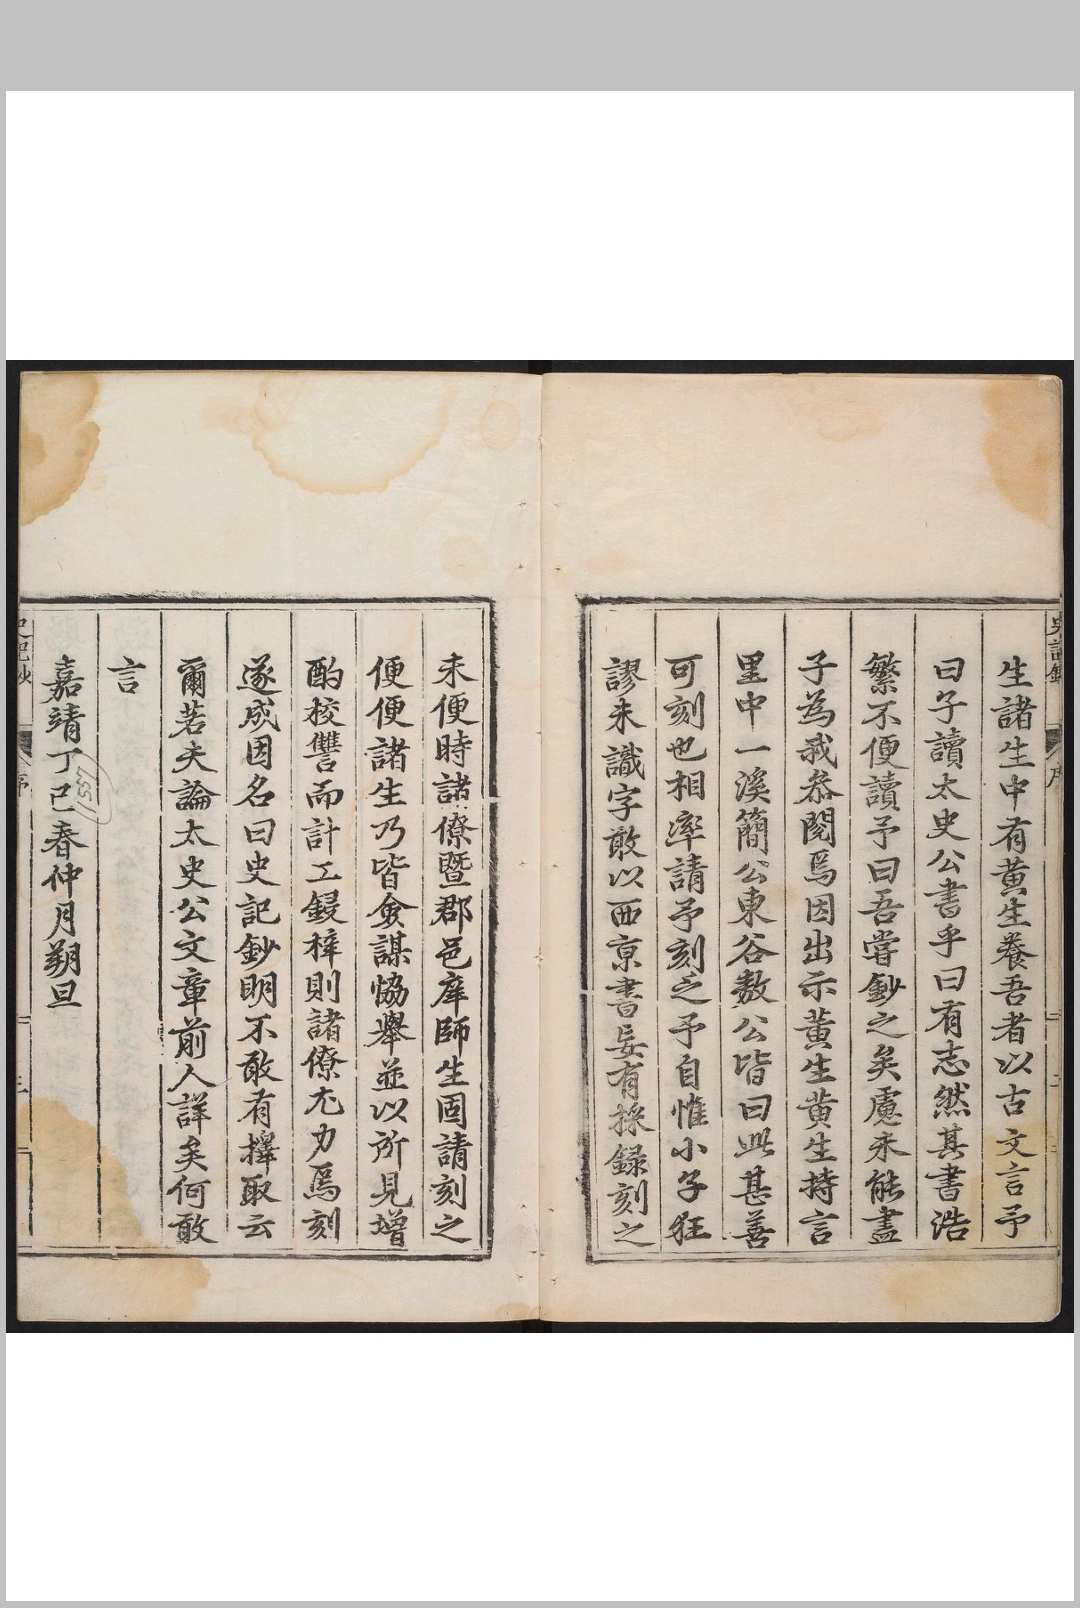 史記鈔
序
生諸生中有黄生養吾者以古文言予
曰子讀太史公書乎曰有志然其書浩
繁不便讀予曰吾嘗鈔之矣慮未能盡
子為我叅閱焉因出示黄生黄生持言
里中一溪簡公東谷敖公皆曰此甚善
可刻也相率請予刻之予自惟小子狂
謬未識字敢以西京書妄有採録刻之
未便時諸僚暨郡邑庠師生固請刻之
便便諸生乃皆僉謀恊舉並以所見增
酌校讐而計工鋟梓則諸僚尤力焉刻
遂成因名曰史記鈔明不敢有擇取云
爾若夫論太史公文章前人詳矣何敢
言
嘉靖丁巳春仲月朔旦
1557
史記鈔
序
三